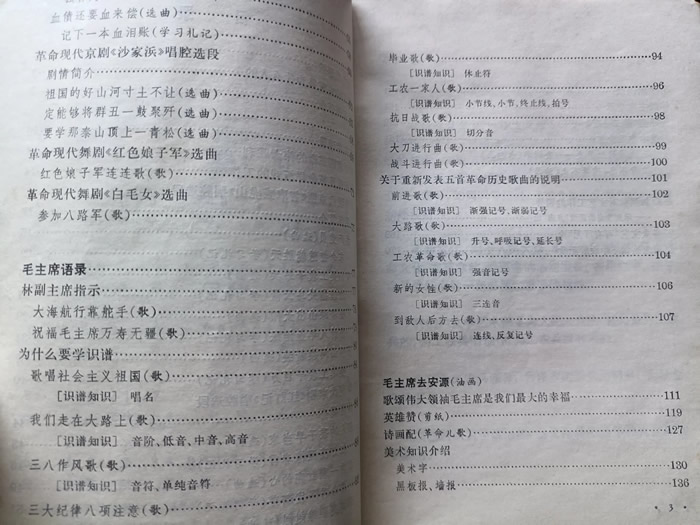 血债还要血来偿(选曲)
记下一本血泪账(学习札记)
革命现代京剧《沙家浜》唱腔选段
剧情简介
祖国的好山河寸土不让(选曲)
定能够将群丑一鼓聚歼(选曲)
要学那泰山顶上一青松(选曲)
革命现代舞剧《红色娘子军》选曲
红色娘子军连连歌(歌)
革命现代舞剧《白毛女》选曲
参加八路军(歌)
毛主席语录
林副主席指示
大海航行靠舵手(歌)
祝福毛主席万寿无疆(歌)
为什么要学识谱
歌唱社会主义祖国(歌)
[识谱知识] 唱名
我们走在大路上(歌)
[识谱知识] 音阶、低音、中音、高音
三八作风歌(歌)
[识谱知识] 音符、单纯音符
三大纪律八项注意(歌)
毕业歌(歌) 94
[识谱知识] 休止符
工农一家人(歌) 96
[识谱知识] 小节线、小节、终止线、拍号
抗日战歌(歌) 98
[识谱知识] 切分音
大刀进行曲(歌) 99
战斗进行曲(歌) 100
关于重新发表五首革命历史歌曲的说明 101
前进歌(歌) 102
[识谱知识] 渐强记号、渐弱记号
大路歌(歌) 103
[识谱知识] 升号、呼吸记号、延长号
工农革命歌(歌) 104
[识谱知识] 强音记号
新的女性(歌) 106
[识谱知识] 三连音
到敌人后方去(歌) 107
[识谱知识] 连线、反复记号
毛主席去安源(油画)
歌颂伟大领袖毛主席是我们最大的幸福 111
英雄赞(剪纸) 119
诗画配(革命儿歌) 127
美术知识介绍
美术字 130
黑板报、墙报 136
· 3 ·